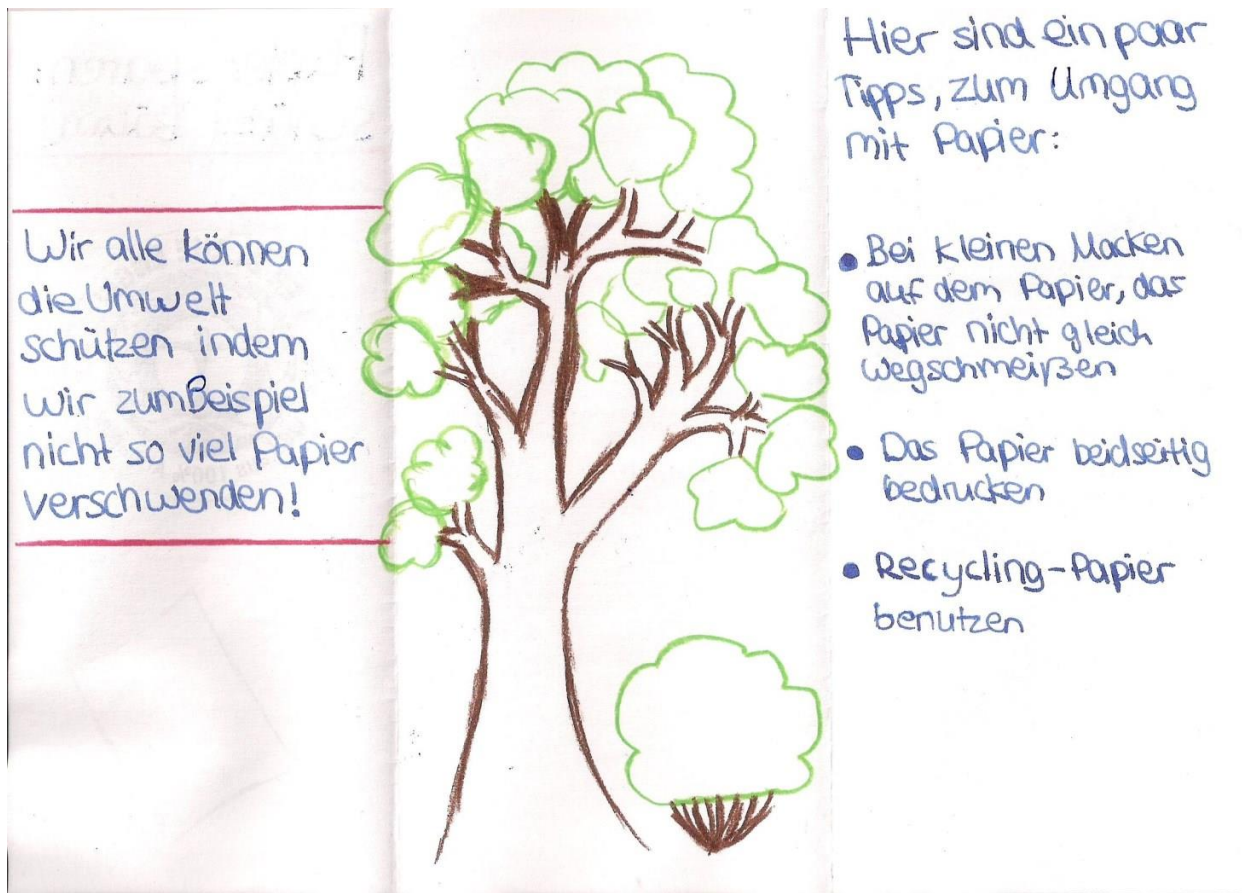 Wir alle können
die Umwelt
schützen indem
wir zum Beispiel
nicht so viel Papier
verschwenden!
Hier sind ein paar
Tipps, zum Umgang
mit Papier:
• Bei kleinen Macken
auf dem Papier, das
Papier nicht gleich
wegschmeißen
• Das Papier beidseitig
bedrucken
• Recycling-Papier
benutzen